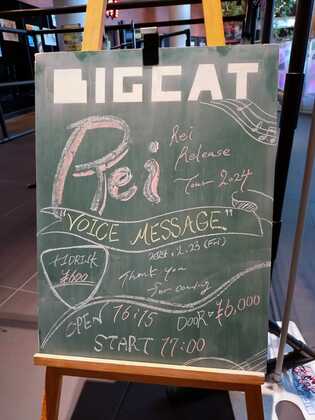 BIGCAT
Rei
Rei
Release
Tour 2024
"VOICE MESSAGE"
2024.2.23 (Fri)
+1DRINK
¥600
Thank you
For coming
OPEN 16:15
DOOR ¥6,000
START 17:00